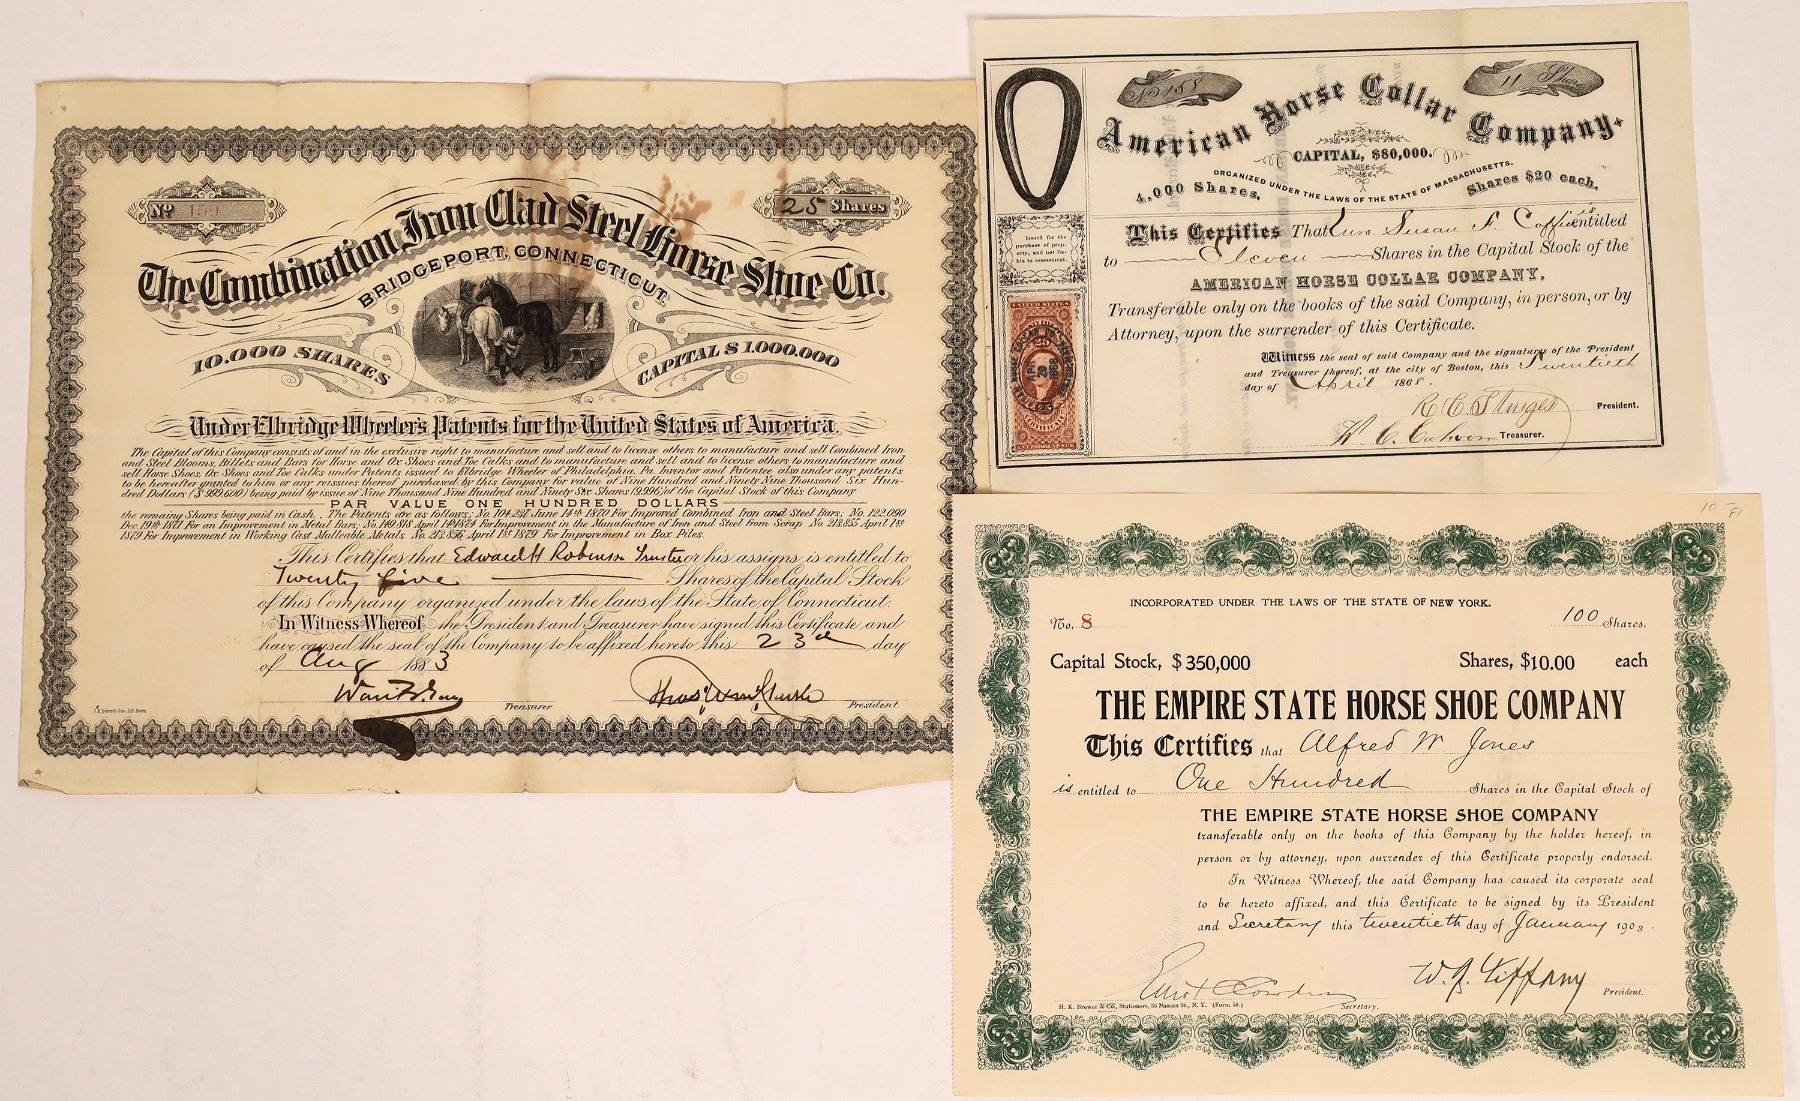 No 159
25 Shares
The Combination Iron Clad Steel Horse Shoe Co.
BRIDGEPORT, CONNECTICUT.
10.000 SHARES
CAPITAL $ 1.000.000
Under Elbridge Wheeler's Patents for the United States of America.
The Capital of this Company consists of and in the exclusive right to manufacture and sell and to license others to manufacture and sell Combined Iron
and Steel Blooms, Billets and Bars for Horse and Ox Shoes and Toe Calks and to manufacture and sell and to license others to manufacture and
sell Horse Shoes, Ox Shoes and Toe Calks under Patents issued to Elbridge Wheeler of Philadelphia, Pa. Inventor and Patentee also under any patents
to be hereafter granted to him or any reissues thereof purchased by this Company for value of Nine Hundred and Ninety Nine Thousand Six Hun-
dred Dollars ($999.600) being paid by issue of Nine Thousand Nine Hundred and Ninety Six Shares (9.996) of the Capital Stock of this Company
PAR VALUE ONE HUNDRED DOLLARS
the remaing Shares being paid in Cash. The Patents are as follows; No. 104.237 June 14th 1870 For Improved Combined Iron and Steel Bars; No. 122.090
Dec. 19th 1871 For an Improvement in Metal Bars; No. 149.813 April 14th 1874 For Improvement in the Manufacture of Iron and Steel from Scrap No. 213.855 April 1st
1879 For Improvement in Working Cast Malleable Metals No. 213.856 April 1st 1879 For Improvement in Box Piles.
This Certifies that Edward H Robinson Trustee or his assigns is entitled to
Twenty five Shares of the Capital Stock
of this Company organized under the laws of the State of Connecticut.
In Witness Whereof the President and Treasurer have signed this Certificate and
have caused the seal of the Company to be affixed hereto this 23rd day
of Aug 1883
Treasurer
President.
No 158
11 Shares
American Horse Collar Company.
CAPITAL, $80,000.
ORGANIZED UNDER THE LAWS OF THE STATE OF MASSACHUSETTS.
4,000 Shares.
Shares $20 each.
This Certifies That Susan F. Coffin is entitled
to Eleven Shares in the Capital Stock of the
AMERICAN HORSE COLLAR COMPANY,
Transferable only on the books of the said Company, in person, or by
Attorney, upon the surrender of this Certificate.
Witness the seal of said Company and the signatures of the President
and Treasurer thereof, at the city of Boston, this Twentieth
day of April 1868.
President.
Treasurer.
Issued for the
purchase of prop-
erty, and not lia-
ble to assessment.
UNITED STATES
20
1868
25
CERTIFICATE
10
F1
INCORPORATED UNDER THE LAWS OF THE STATE OF NEW YORK.
No. 8
100 Shares.
Capital Stock, $350,000
Shares, $10.00 each
THE EMPIRE STATE HORSE SHOE COMPANY
This Certifies that Alfred W. Jones
is entitled to One Hundred Shares in the Capital Stock of
THE EMPIRE STATE HORSE SHOE COMPANY
transferable only on the books of this Company by the holder hereof, in
person or by attorney, upon surrender of this Certificate properly endorsed.
In Witness Whereof, the said Company has caused its corporate seal
to be hereto affixed, and this Certificate to be signed by its President
and Secretary this twentieth day of January 1903.
W. J. Tiffany
President.
Secretary.
H. K. Brewer & Co., Stationers, 33 Nassau St., N. Y. (Form 54.)